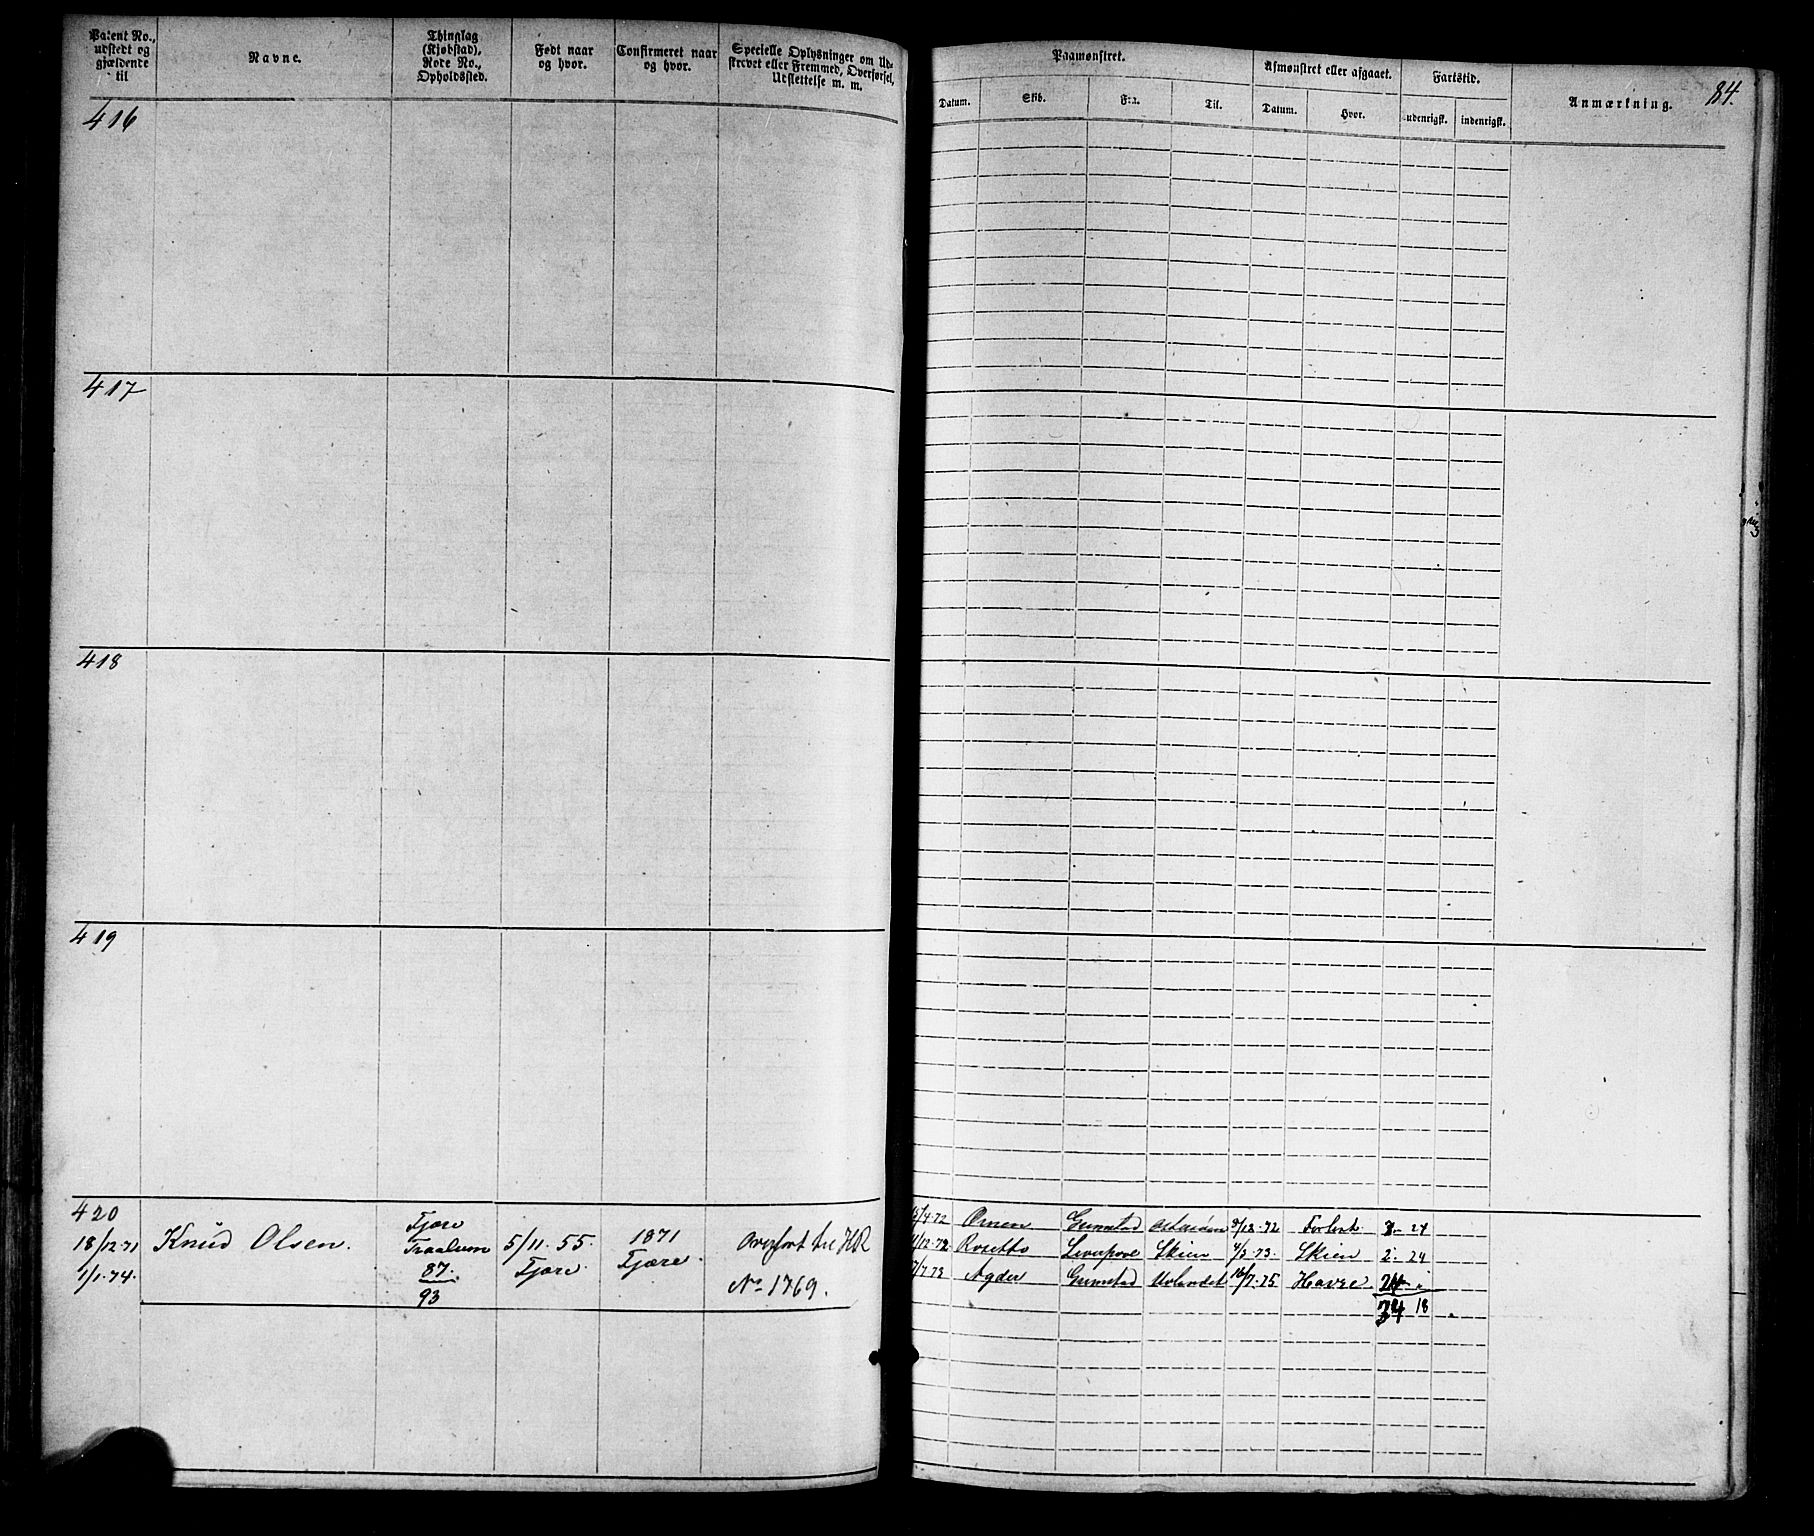 Patent No., udstedt og gjældende til
Navne.
Thinglag (Kjøbstad), Rode No., Opholdssted.
Født naar og hvor.
Confirmeret naar og hvor.
Specielle Oplysninger om Udskrevet eller Fremmed, Overførsel, Udslettelse m. m.
Paamønstret.
Datum.
Skib.
Fra.
Til.
Afmønstret eller afgaaet.
Datum.
Hvor.
Fartstid.
udenrigsk.
indenrigsk.
Anmærkning.
84.
416
417
418
419
420
18/12 71
1/1. 74.
Knud Olsen.
Fjære
87.
93
5/11. 55.
Fjære.
1871
Fjære.
Overført til HR
No 1769.
/4. 72 Ørnen Grimstad 72 Forlist 24
/12. 72 Rosetta Liverpool Skien 4/3. 73. Skien 2. 24
/7 73 Agder Grimstad Udlandet 16/7. 75 Havre 24 "
34 18